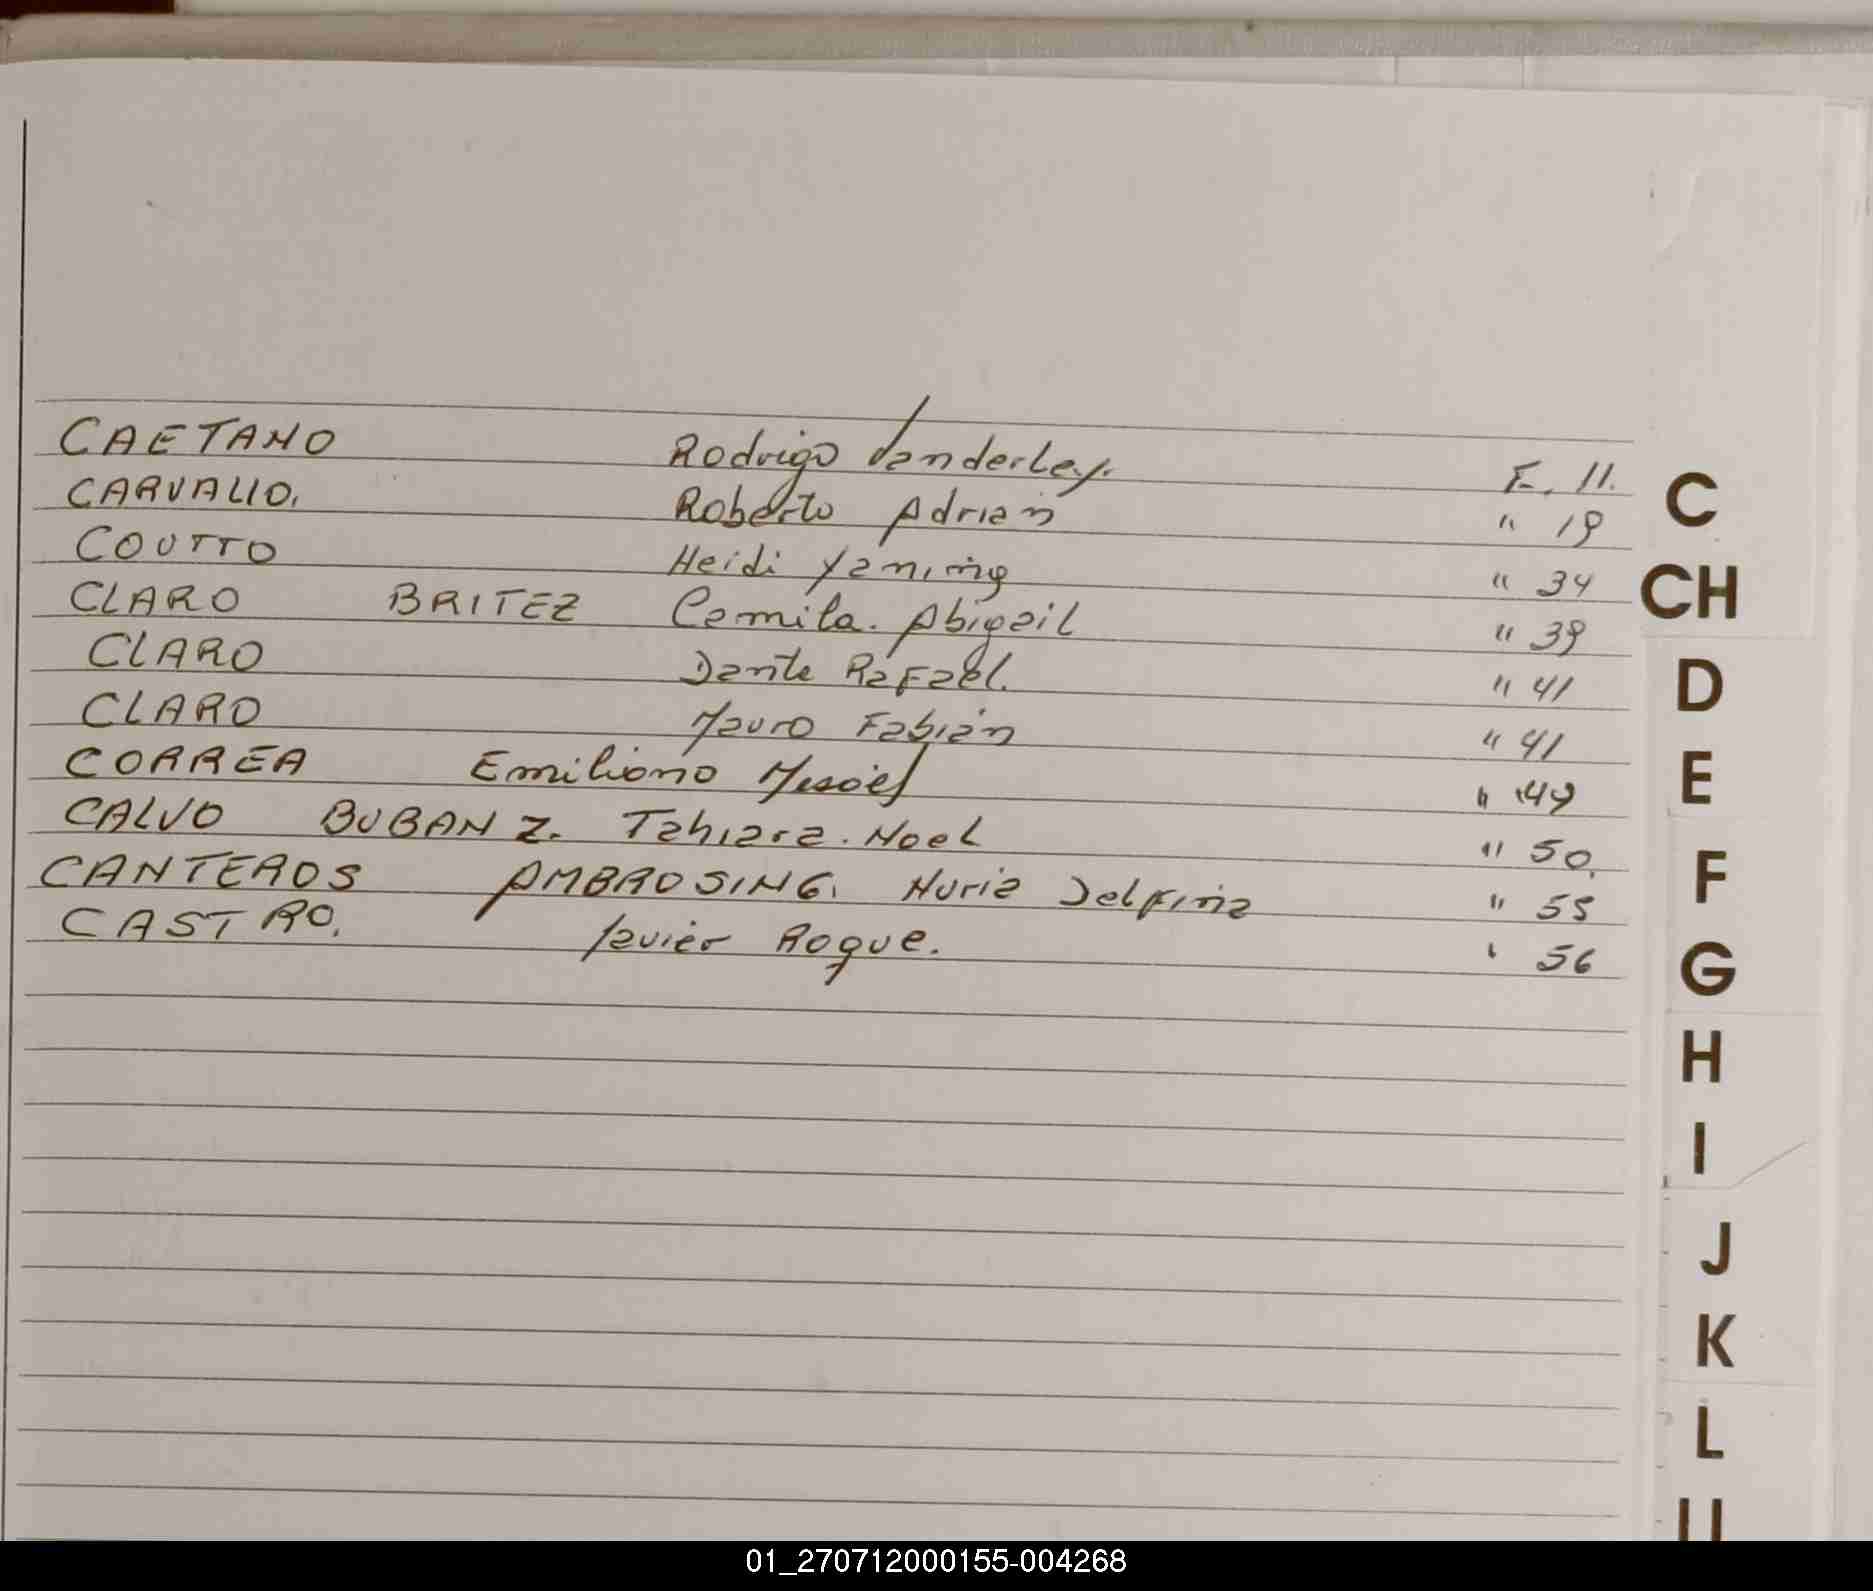 CAETANO Rodrigo Vanderley. F. 11.
CARVALLO. Roberto Adrian " 19
COUTTO Heidi Yanina " 34
CLARO BRITEZ Camila. Abigail " 39
CLARO Dante Rafael. " 41
CLARO Mauro Fabián " 41
CORREA Emiliano " 49
CALVO Tahiara. Noel " 50.
CANTEROS Nuria Delfina " 55
CASTRO. Javier Roque. " 56
C
CH
D
E
F
G
H
I
J
K
L
01_270712000155-004268